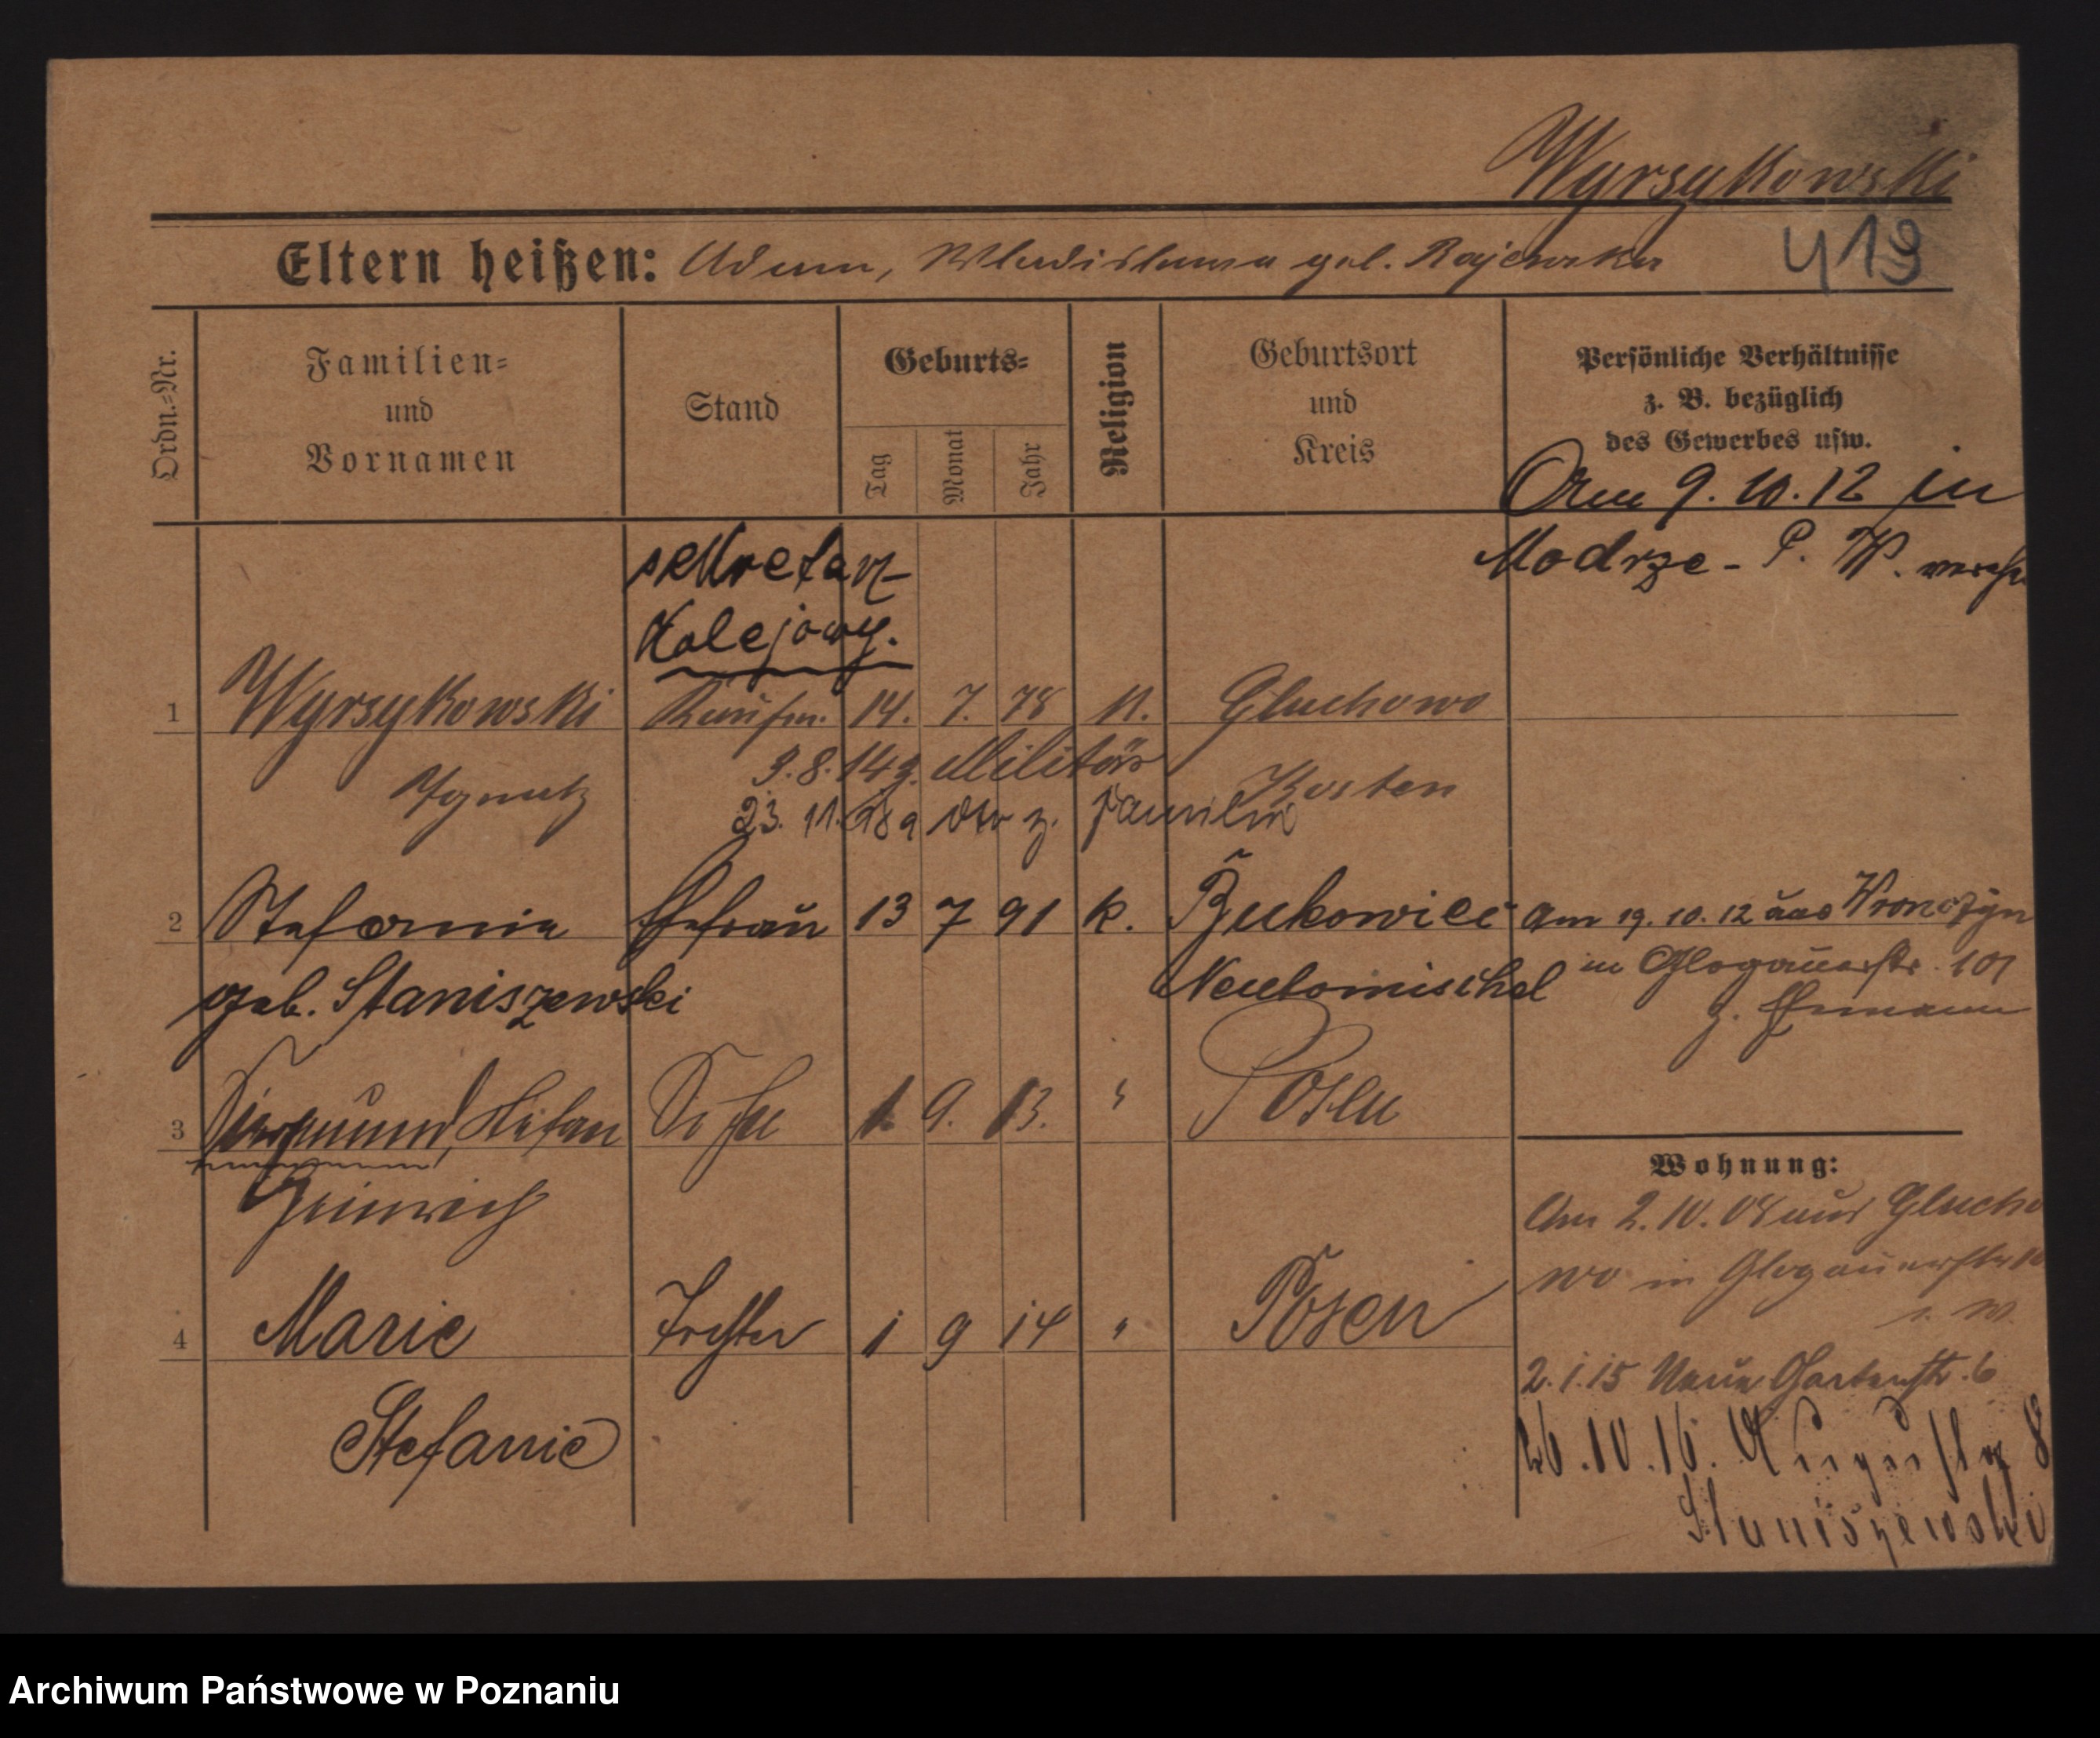 Wyrsykowski
Eltern heißen: Adam, Wladislawa geb. Rajewska
419
Ordn.-Nr.
Familien-
und
Vornamen
Stand
Geburts-
Tag
Monat
Jahr
Religion
Geburtsort
und
Kreis
Persönliche Verhältnisse
z. B. bezüglich
des Gewerbes usw.
Am 9. 10. 12 in
Modrze - P. W.
sekretarz
Kolejowy.
1 Wyrsykowski Kaufm. 14. 7. 78 K. Gluchowo
Ignatz Kosten
3. 8. 14 z. Militär
23. 11. z. Familie
2 Stefania Ehefrau 13 7 91 k. Bukowiec am 19. 10. 12 aus Wronczyn
geb. Staniszewski Neutomischel in Glogauerstr. 101
z. Ehemann
3 Siegmund, Stefan Sohn 1. 9. 13. " Posen
Heinrich
4 Marie Tochter 1 9 14 " Posen
Stefanie
Wohnung:
Am 2. 10. 08 aus Glucho
wo in Glogauerstr.
2. 1. 15 Neue Gartenstr. 6
26. 10. 16. Augustastr 8
Staniszewski
Archiwum Państwowe w Poznaniu